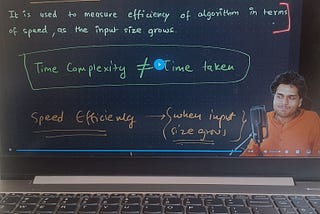 It is used to measure efficiency of algorithm in terms
of speed, as the input size grows.
Time Complexity ≠ Time taken
Speed Efficiency → {when input
size grows}